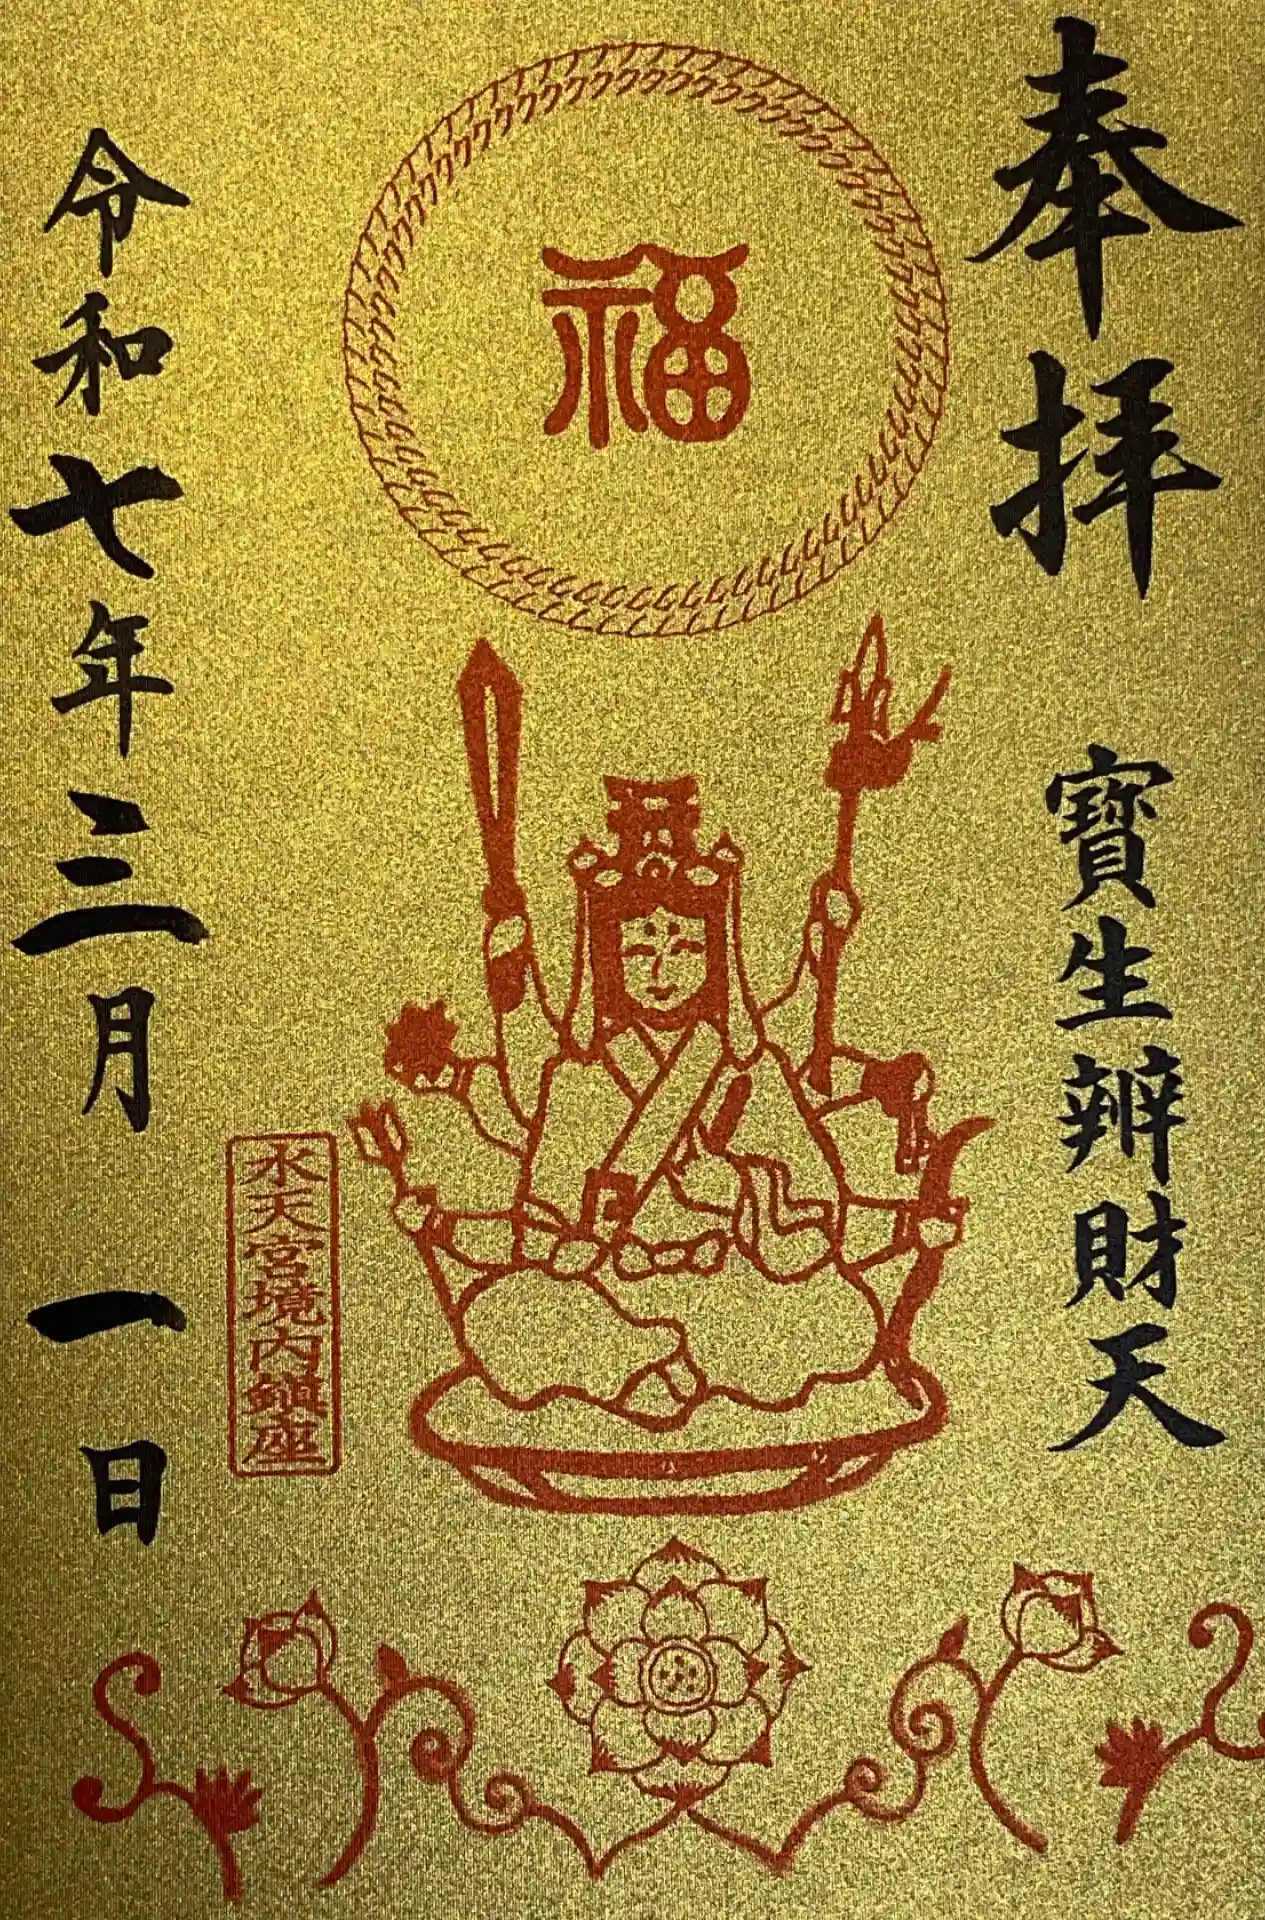 奉拝
寶生辨財天
福
水天宮境内鎮座
令和七年三月一日